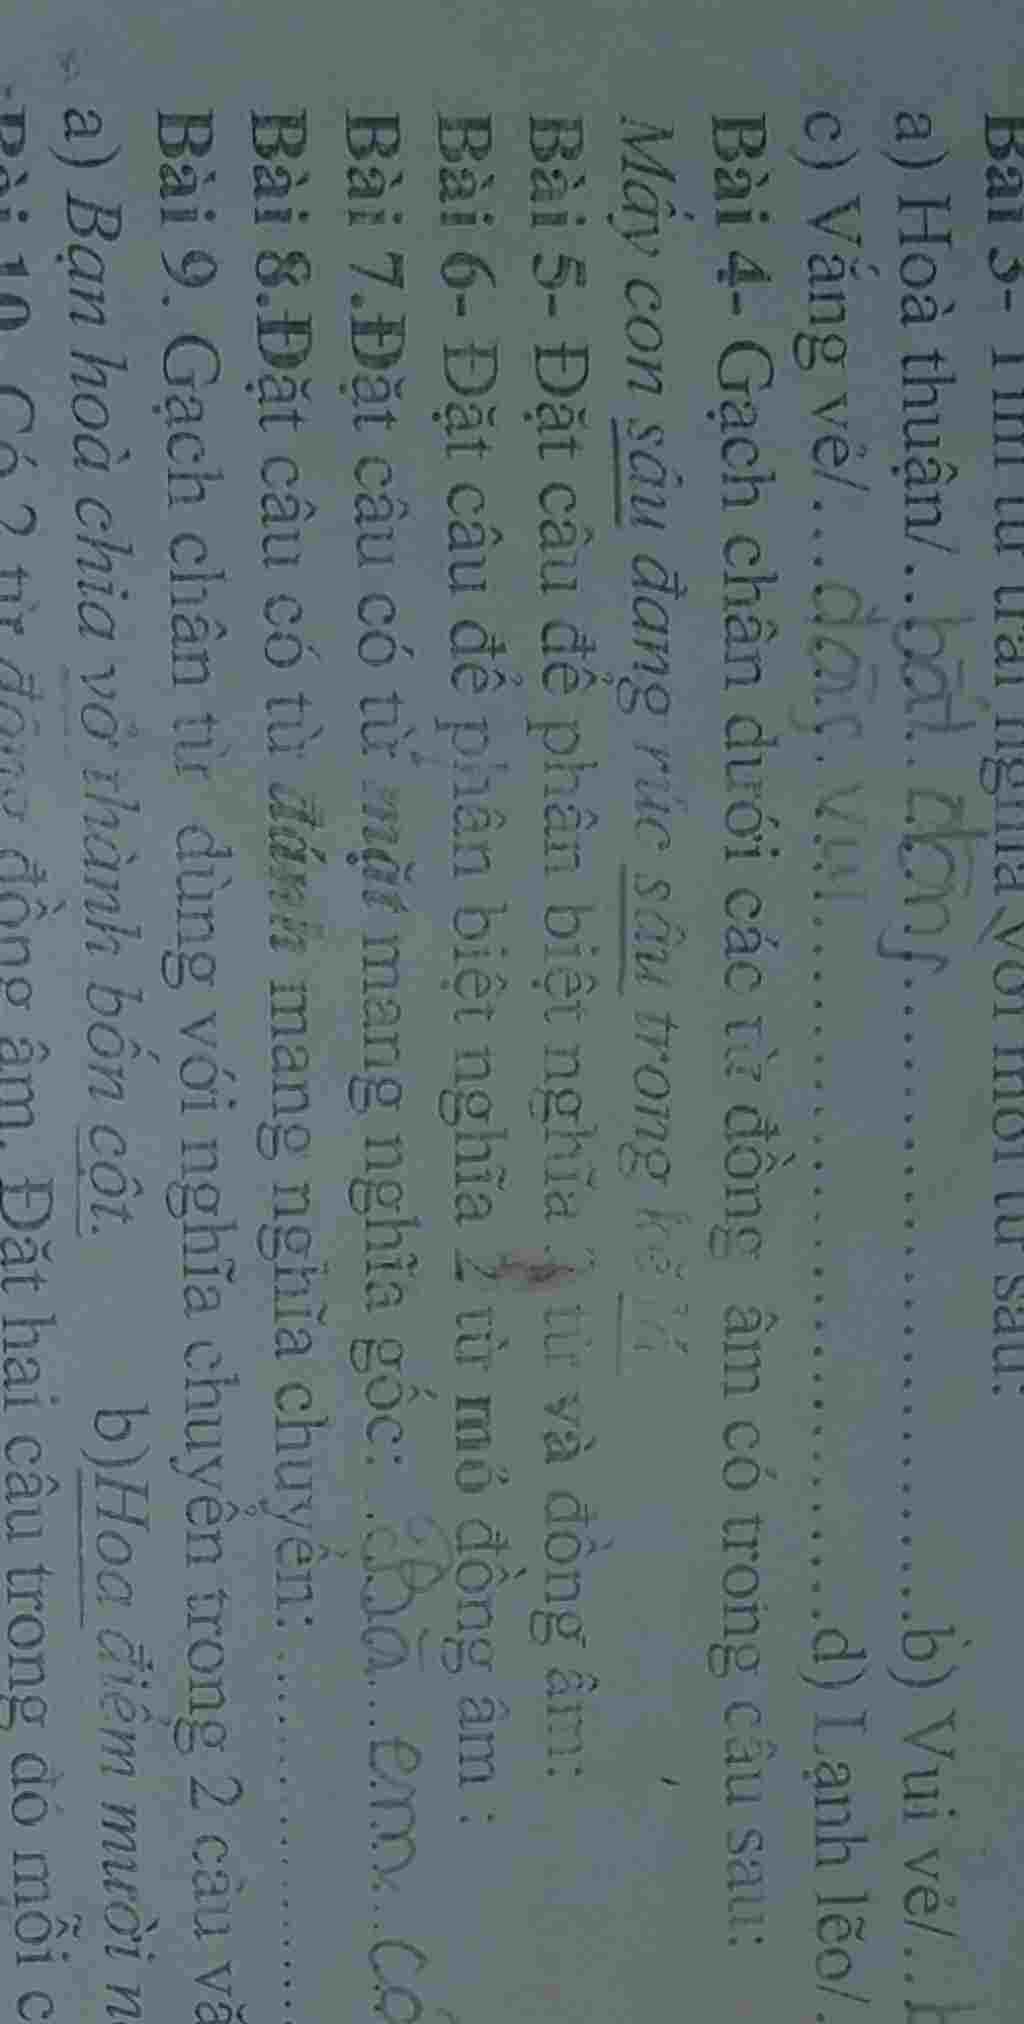 Bài 3- Tìm từ trái nghĩa với mỗi từ sau:
a) Hoà thuận/..bất. đồng....................b) Vui vẻ/..
c) Vắng vẻ/...đông. vui....................d) Lạnh lẽo/.
Bài 4- Gạch chân dưới các từ đồng âm có trong câu sau:
Mấy con sâu đang rúc sâu trong kẽ lá
Bài 5- Đặt câu để phân biệt nghĩa từ và đồng âm:
Bài 6- Đặt câu để phân biệt nghĩa 2 từ mỏ đồng âm :
Bài 7.Đặt câu có từ mặt mang nghĩa gốc: ...em...có
Bài 8.Đặt câu có từ đánh mang nghĩa chuyển: ....................
Bài 9. Gạch chân từ dùng với nghĩa chuyển trong 2 câu
a) Bạn hoà chia vở thành bốn cột. b)Hoa điểm mười
Bài 10 Có 2 từ đồng đồng âm. Đặt hai câu trong đó mỗi